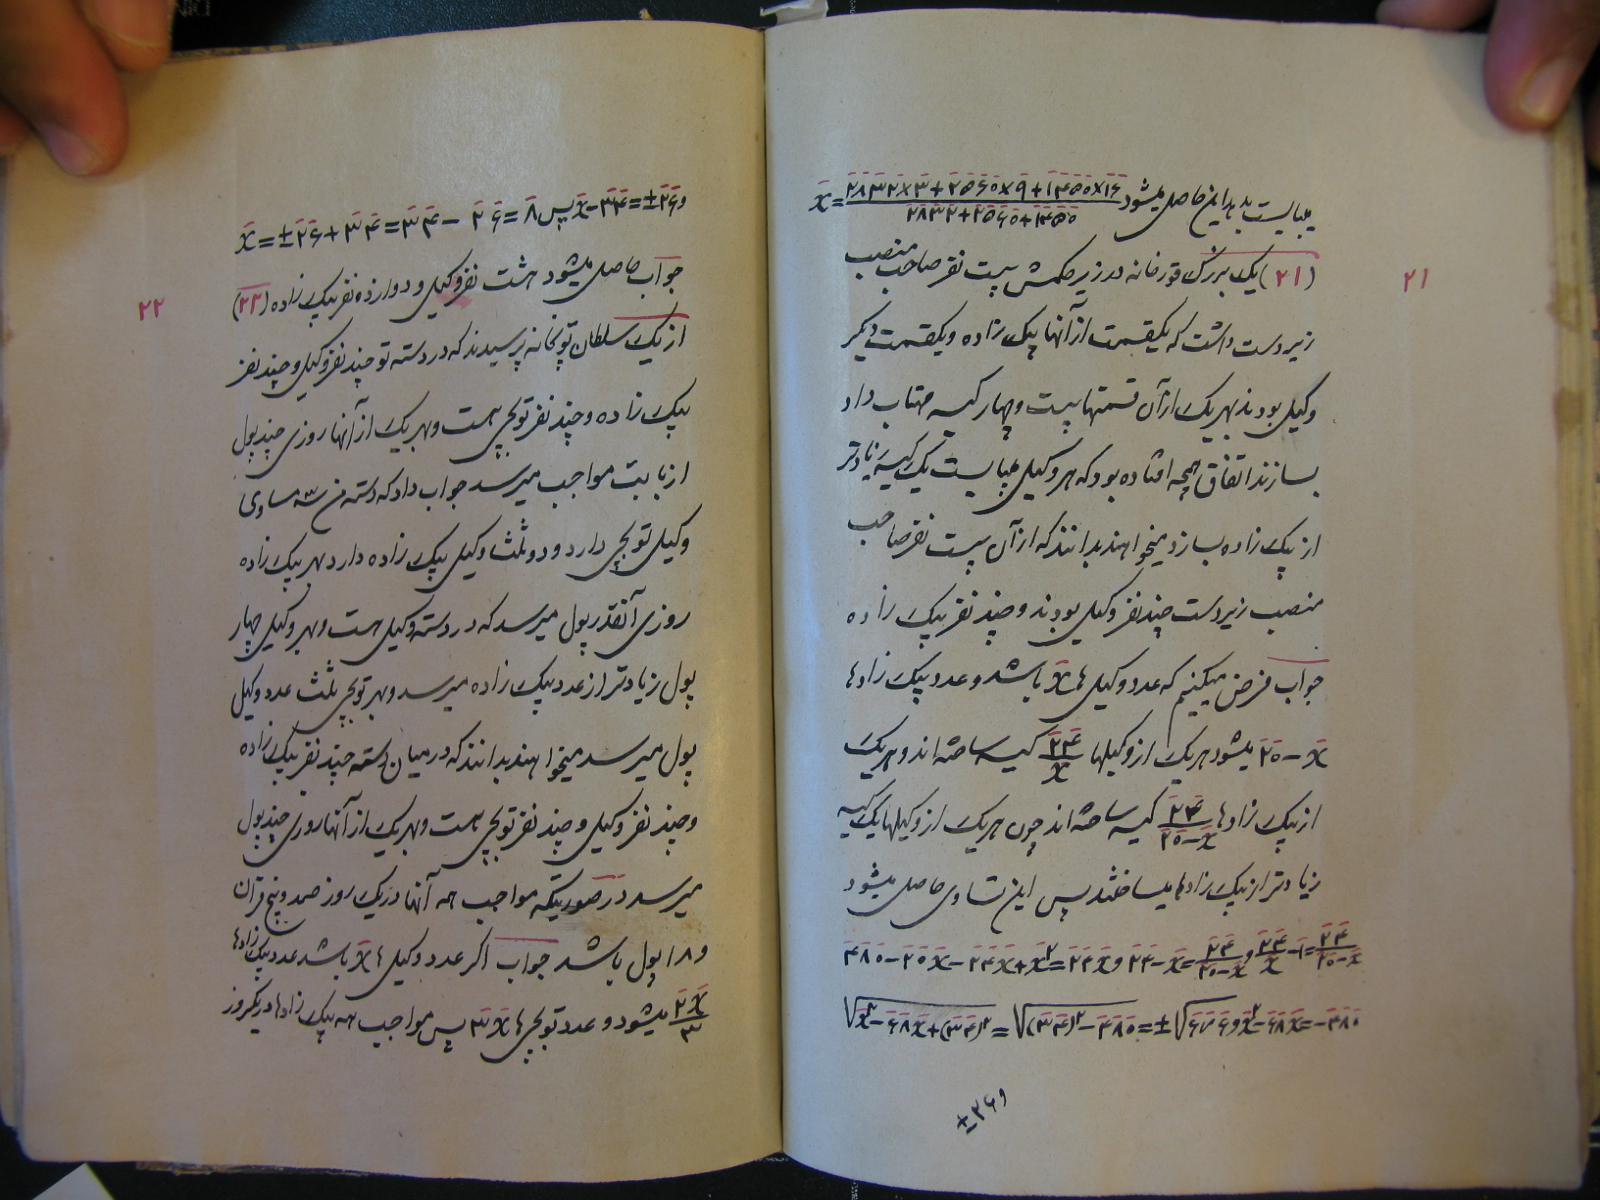 میبایست بدهد این حاصل میشود x = (۲۸۳۲×۳+۲۵۶۰×۹+۱۴۵۰×۱۶)/(۲۸۳۲+۲۵۶۰+۱۴۵۰)
۲۱
(۲۱) یک بزرگ قورخانه در زیر حکمش بیست نفر صاحب منصب
زیردست داشت که یکقسمت از آنها بیک زاده و یکقسمت دیگر
وکیل بودند بهر یک از آن قسمتها بیست و چهار کیسه مهتاب داد
بسازند اتفاق همچه افتاده بود که هر وکیل میبایست یک کیسه زیادتر
از بیک زاده بسازد میخواهند بدانند که از آن بیست نفر صاحب
منصب زیردست چند نفر وکیل بودند و چند نفر بیک زاده
جواب فرض میکنیم که عدد وکیل ها x باشد و عدد بیک زادها
۲۰−x میشود هر یک از وکیلها ۲۴/x کیسه ساخته اند و هر یک
از بیک زادها ۲۴/(۲۰−x) کیسه ساخته اند چون هر یک از وکیلها یک کیسه
زیادتر از بیک زادها میساختند پس این تساوی حاصل میشود
۴۸۰−۲۰x−۲۴x+x²=۲۴x و ۲۴−x/x=۲۴/(۲۰−x) و ۲۴/x−۱=۲۴/(۲۰−x)
√x²−۶۸x+(۳۴)²=√(۳۴)²−۴۸۰=±√۶۷۶ و x²−۶۸x=−۴۸۰
و ۲۶±
و ۲۶±=۳۴−x پس ۸=۲۶−۳۴=۳۴+۲۶±=x
۲۲
جواب حاصل میشود هشت نفر وکیل و دوازده نفر بیک زاده (۲۲)
از یک سلطان توپخانه پرسیدند که در دسته تو چند نفر وکیل و چند نفر
بیک زاده و چند نفر توپچی هست و بهر یک از آنها روزی چند پول
از بابت مواجب میرسد جواب داد که دسته من سه مساوی
وکیل توپچی دارد و دو ثلث وکیل بیک زاده دارد بهر بیک زاده
روزی آنقدر پول میرسد که در دسته وکیل هست و بهر وکیل چهار
پول زیادتر از عدد بیک زاده میرسد و بهر توپچی ثلث عدد وکیل
پول میرسد میخواهند بدانند که در میان دسته چند نفر بیک زاده
و چند نفر وکیل و چند نفر توپچی هست و بهر یک از آنها روزی چند پول
میرسد در صورتیکه مواجب همه آنها در یک روز صد و پنج قران
و ۱۸ پول باشد جواب اگر عدد وکیل ها x باشد عدد بیک زادها
۲x/۳ میشود و عدد توپچی ها ۳x پس مواجب همه بیک زادها در یکروز